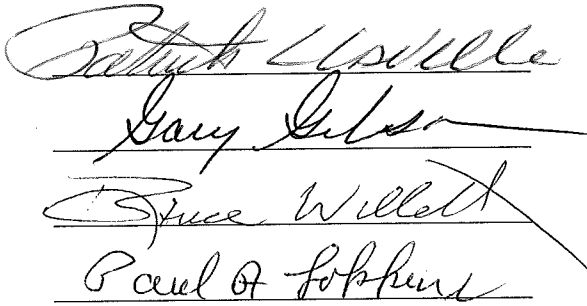 Patrick
Gary Gibson
Bruce Willett
Paul A